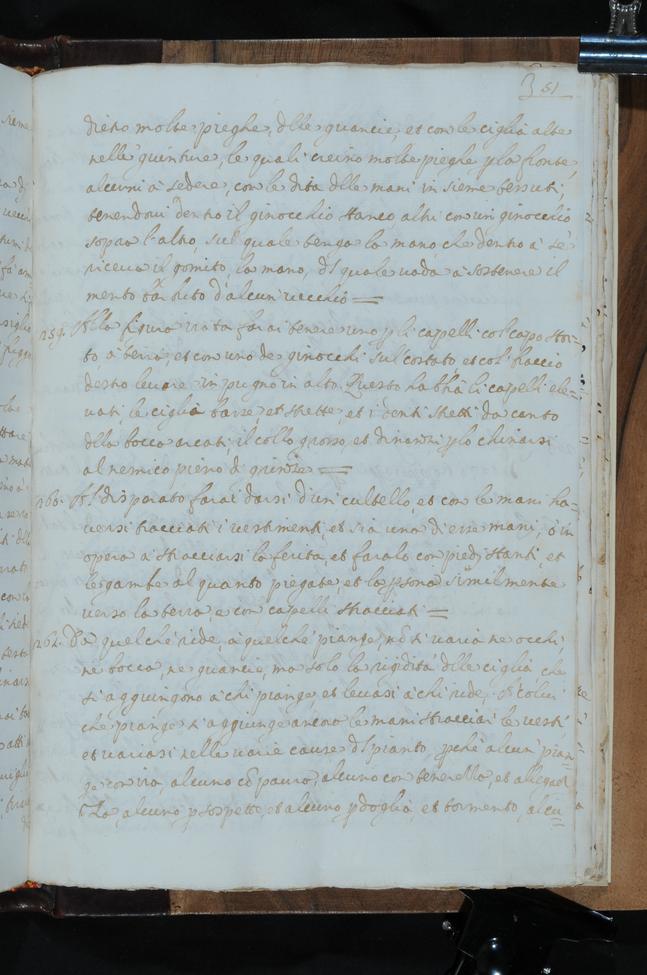 51
dieno molte pieghe, dlle guancie, et con le ciglia alte
nelle giunture, le quali creino molte pieghe p la fronte,
alcuni a sedere, con le dita dlle mani in sieme tessuti,
tenendovi dentro il ginocchio stanco altri con un ginocchio
sopra l'altro, sul quale tenga la mano, che dentro a sè
riceva il gomito, la mano, dl quale vada a sostenere il
mento barbuto d'alcun vecchio =
259. Alla figura irata farai tenere uno p li capelli col capo stor=
to, a terra, et con uno de ginocchi sul costato, et col braccio
destro levare in pugno in alto. Questo habbia li capelli ele=
vati, le ciglia basse et strette, et i denti stretti da canto
dlla bocca arcati; il collo grosso, et dinanzi p lo chinarsi
al nemico pieno di grinze =
260. Al disperato farai darsi d'un cultello, et con le mani ha=
versi stracciati i vestimenti, et sia una di esse mani, in
opera a stracciarsi la ferita, et faralo con piedi stanti, et
le gambe al quanto piegate, et la psona similmente
verso la terra, e con capelli stracciati =
262. Da quel chè ride, a quel chè piange, nō si varia ne occhi,
ne bocca, ne guancie, ma solo la rigidità dlle ciglia che
si aggiungono a chi piange, et levasi a chi ride, A colui
che piange s'aggiunge ancora le mani stracciar le vesti,
et variasi nelle varie cause dl pianto, pchè alcun' pian=
ge con ira, alcuno cō paura, alcuno con tenerella, et allegrez
Za, alcuno p sospetto, et alcuno p doglia, et tormento, alcu=